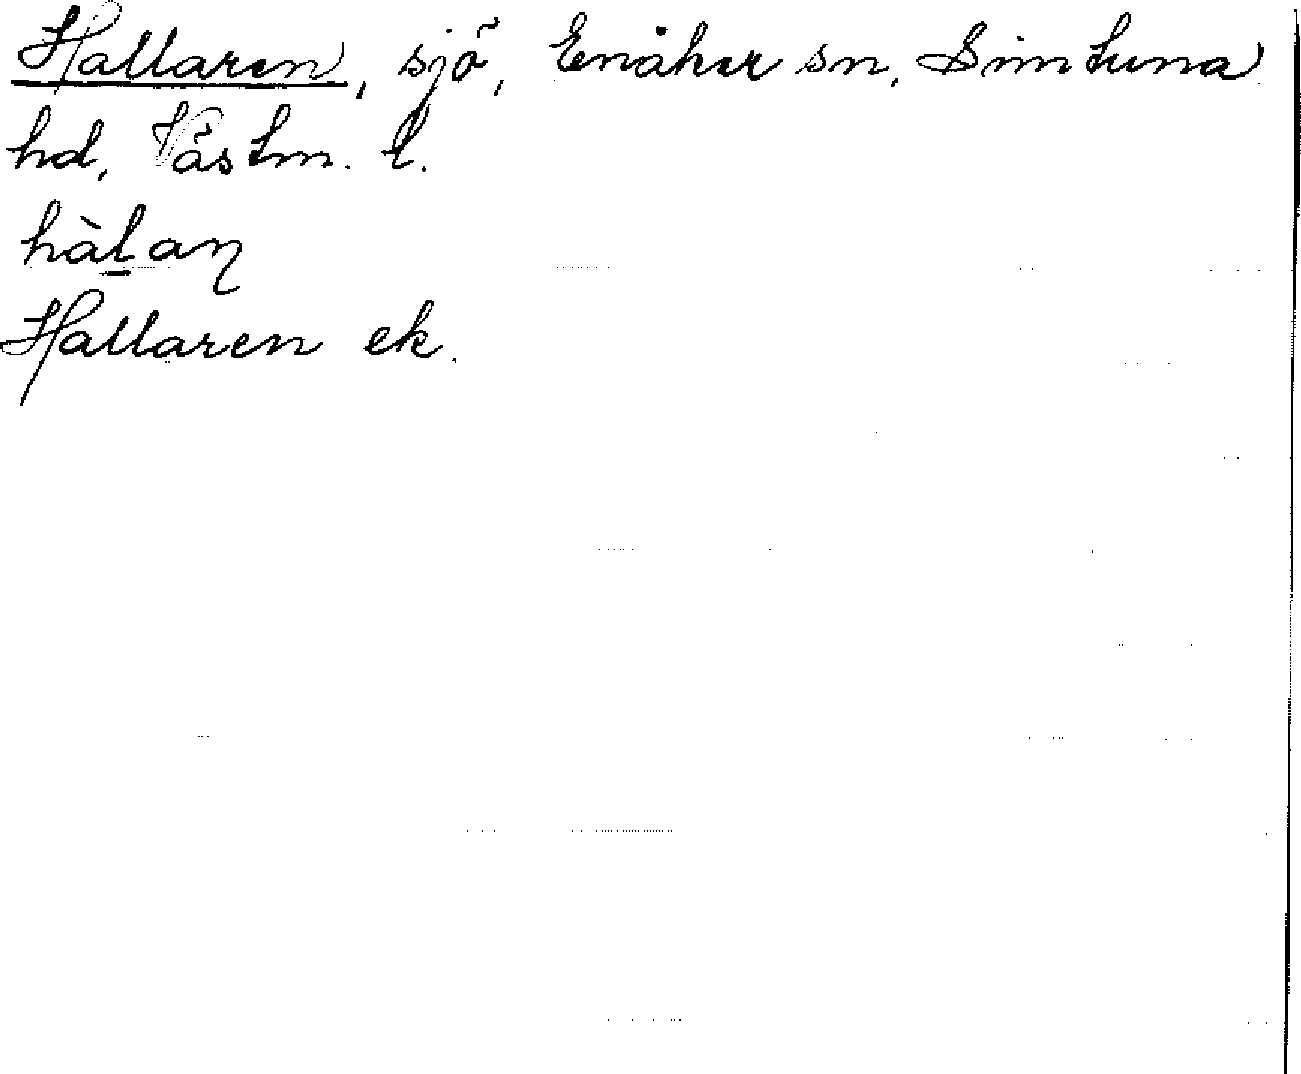 Hallaren, sjö, Enåker sn, Simtuna
hd, Västm. l.
hàḻaṇ
Hallaren ek.